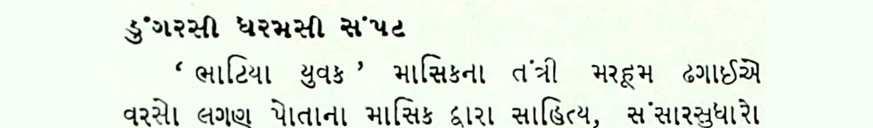 ડુંગરસી ધરમસી સંપટ
‘ ભાટિયા યુવક ’ માસિકના તંત્રી મરહૂમ ઢગાઈએ
વરસો લગણ પોતાના માસિક દ્વારા સાહિત્ય, સંસારસુધારો